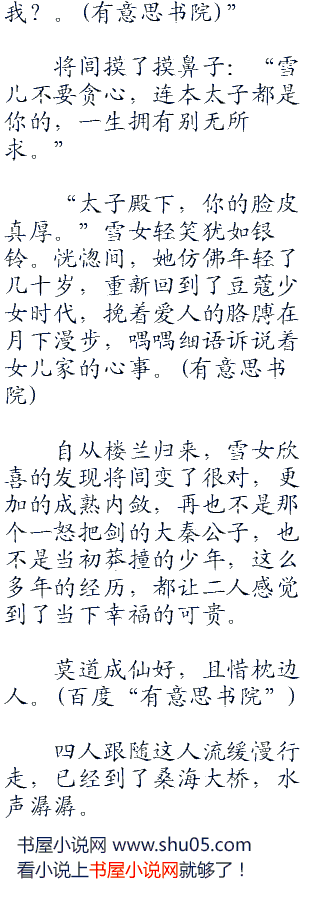 我？。(有意思书院)”
将闾摸了摸鼻子：“雪
儿不要贪心，连本太子都是
你的，一生拥有别无所
求。”
“太子殿下，你的脸皮
真厚。”雪女轻笑犹如银
铃。恍惚间，她仿佛年轻了
几十岁，重新回到了豆蔻少
女时代，挽着爱人的胳膊在
月下漫步，喁喁细语诉说着
女儿家的心事。(有意思书
院)
自从楼兰归来，雪女欣
喜的发现将闾变了很对，更
加的成熟内敛，再也不是那
个一怒把剑的大秦公子，也
不是当初莽撞的少年，这么
多年的经历，都让二人感觉
到了当下幸福的可贵。
莫道成仙好，且惜枕边
人。(百度“有意思书院”)
四人跟随这人流缓慢行
走，已经到了桑海大桥，水
声潺潺。
书屋小说网 www.shu05.com
看小说上书屋小说网就够了！